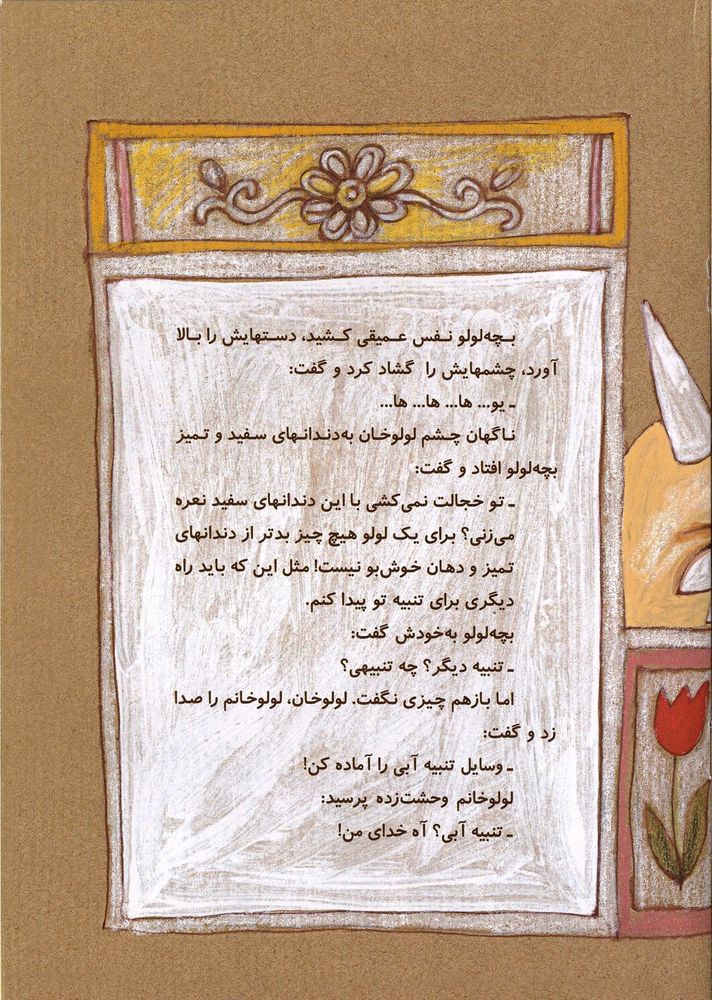 بچه‌لولو نفس عمیقی کشید، دستهایش را بالا
آورد، چشمهایش را گشاد کرد و گفت:
ـ یو... ها... ها... ها...
ناگهان چشم لولوخان به‌دندانهای سفید و تمیز
بچه‌لولو افتاد و گفت:
ـ تو خجالت نمی‌کشی با این دندانهای سفید نعره
می‌زنی؟ برای یک لولو هیچ چیز بدتر از دندانهای
تمیز و دهان خوش‌بو نیست! مثل این که باید راه
دیگری برای تنبیه تو پیدا کنم.
بچه‌لولو به‌خودش گفت:
ـ تنبیه دیگر؟ چه تنبیهی؟
اما بازهم چیزی نگفت. لولوخان، لولوخانم را صدا
زد و گفت:
ـ وسایل تنبیه آبی را آماده کن!
لولوخانم وحشت‌زده پرسید:
ـ تنبیه آبی؟ آه خدای من!